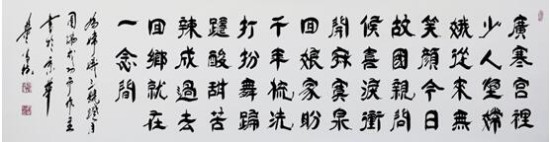 廣寒宮裡
少人煙嫦
娥從來無
笑顏今日
故國親問
候喜淚衝
開寂寞泉
回娘家盼
千年梳洗
打扮舞蹁
躚酸甜苦
辣成過去
回鄉就在
一念間
圓滿成功而作並
書於京華